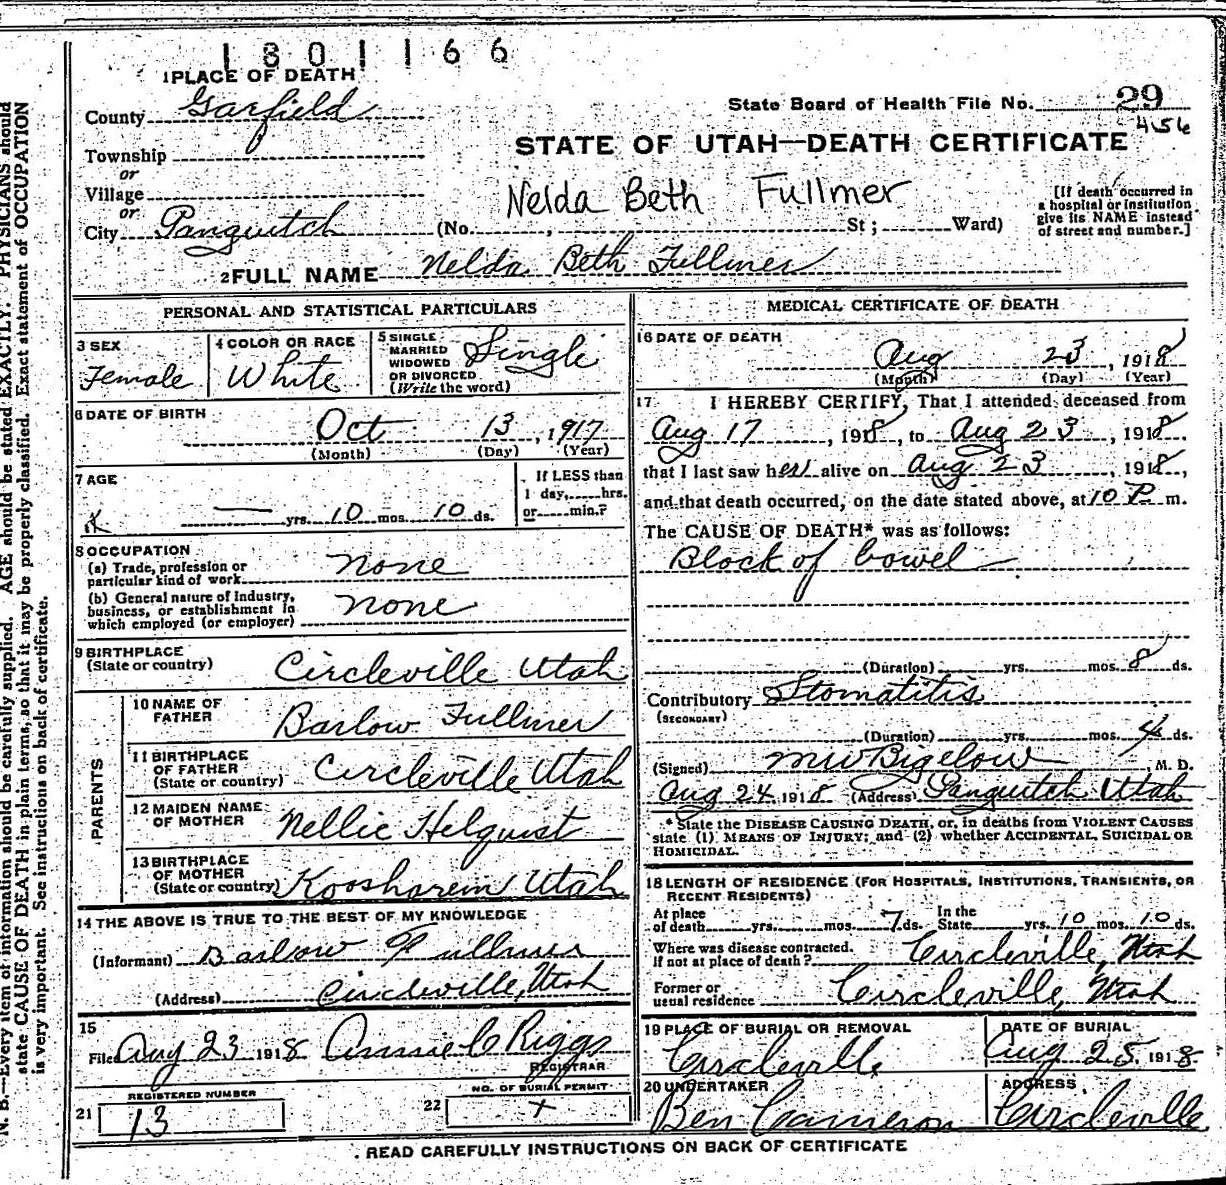 1801166
1 PLACE OF DEATH
County Garfield
State Board of Health File No. 29
456
Township
or
Village
or
City Panguitch
STATE OF UTAH—DEATH CERTIFICATE
Nelda Beth Fullmer
(No. , St ; Ward)
[If death occurred in
a hospital or institution
give its NAME instead
of street and number.]
2 FULL NAME Nelda Beth Fullmer
PERSONAL AND STATISTICAL PARTICULARS
3 SEX
Female
4 COLOR OR RACE
White
5 SINGLE
MARRIED
WIDOWED
OR DIVORCED
(Write the word)
Single
6 DATE OF BIRTH
Oct 13, 1917
(Month) (Day) (Year)
7 AGE
— yrs. 10 mos. 10 ds.
If LESS than
1 day, hrs.
or min.?
8 OCCUPATION
(a) Trade, profession or
particular kind of work none
(b) General nature of Industry,
business, or establishment in
which employed (or employer) none
9 BIRTHPLACE
(State or country) Circleville Utah
PARENTS
10 NAME OF
FATHER Barlow Fullmer
11 BIRTHPLACE
OF FATHER
(State or country) Circleville Utah
12 MAIDEN NAME
OF MOTHER Nellie Helquist
13 BIRTHPLACE
OF MOTHER
(State or country) Koosharem Utah
14 THE ABOVE IS TRUE TO THE BEST OF MY KNOWLEDGE
(Informant) Barlow Fullmer
(Address) Circleville, Utah
15
Filed Aug 23 1918 Annie C Riggs
REGISTRAR
REGISTERED NUMBER
21 13
NO. OF BURIAL PERMIT
22 +
MEDICAL CERTIFICATE OF DEATH
16 DATE OF DEATH
Aug 23, 1918
(Month) (Day) (Year)
17 I HEREBY CERTIFY, That I attended deceased from
Aug 17, 1918, to Aug 23, 1918
that I last saw her alive on Aug 23, 1918,
and that death occurred, on the date stated above, at 10 P m.
The CAUSE OF DEATH* was as follows:
Block of bowel
(Duration) yrs. mos. 8 ds.
Contributory Stomatitis
(SECONDARY)
(Duration) yrs. mos. 4 ds.
(Signed) MW Bigelow M. D.
Aug 24 1918 (Address) Panguitch Utah
* State the DISEASE CAUSING DEATH, or, in deaths from VIOLENT CAUSES
state (1) MEANS OF INJURY; and (2) whether ACCIDENTAL, SUICIDAL OR
HOMICIDAL.
18 LENGTH OF RESIDENCE (FOR HOSPITALS, INSTITUTIONS, TRANSIENTS, OR
RECENT RESIDENTS)
At place
of death yrs. mos. 7 ds. In the
State yrs. 10 mos. 10 ds.
Where was disease contracted.
If not at place of death? Circleville, Utah
Former or
usual residence Circleville, Utah
19 PLACE OF BURIAL OR REMOVAL
Circleville
DATE OF BURIAL
Aug 25, 1918
20 UNDERTAKER
Ben Cameron
ADDRESS
Circleville
READ CAREFULLY INSTRUCTIONS ON BACK OF CERTIFICATE
N. B.—Every item of information should be carefully supplied. AGE should be stated EXACTLY. PHYSICIANS should
state CAUSE OF DEATH in plain terms, so that it may be properly classified. Exact statement of OCCUPATION
is very important. See instructions on back of certificate.